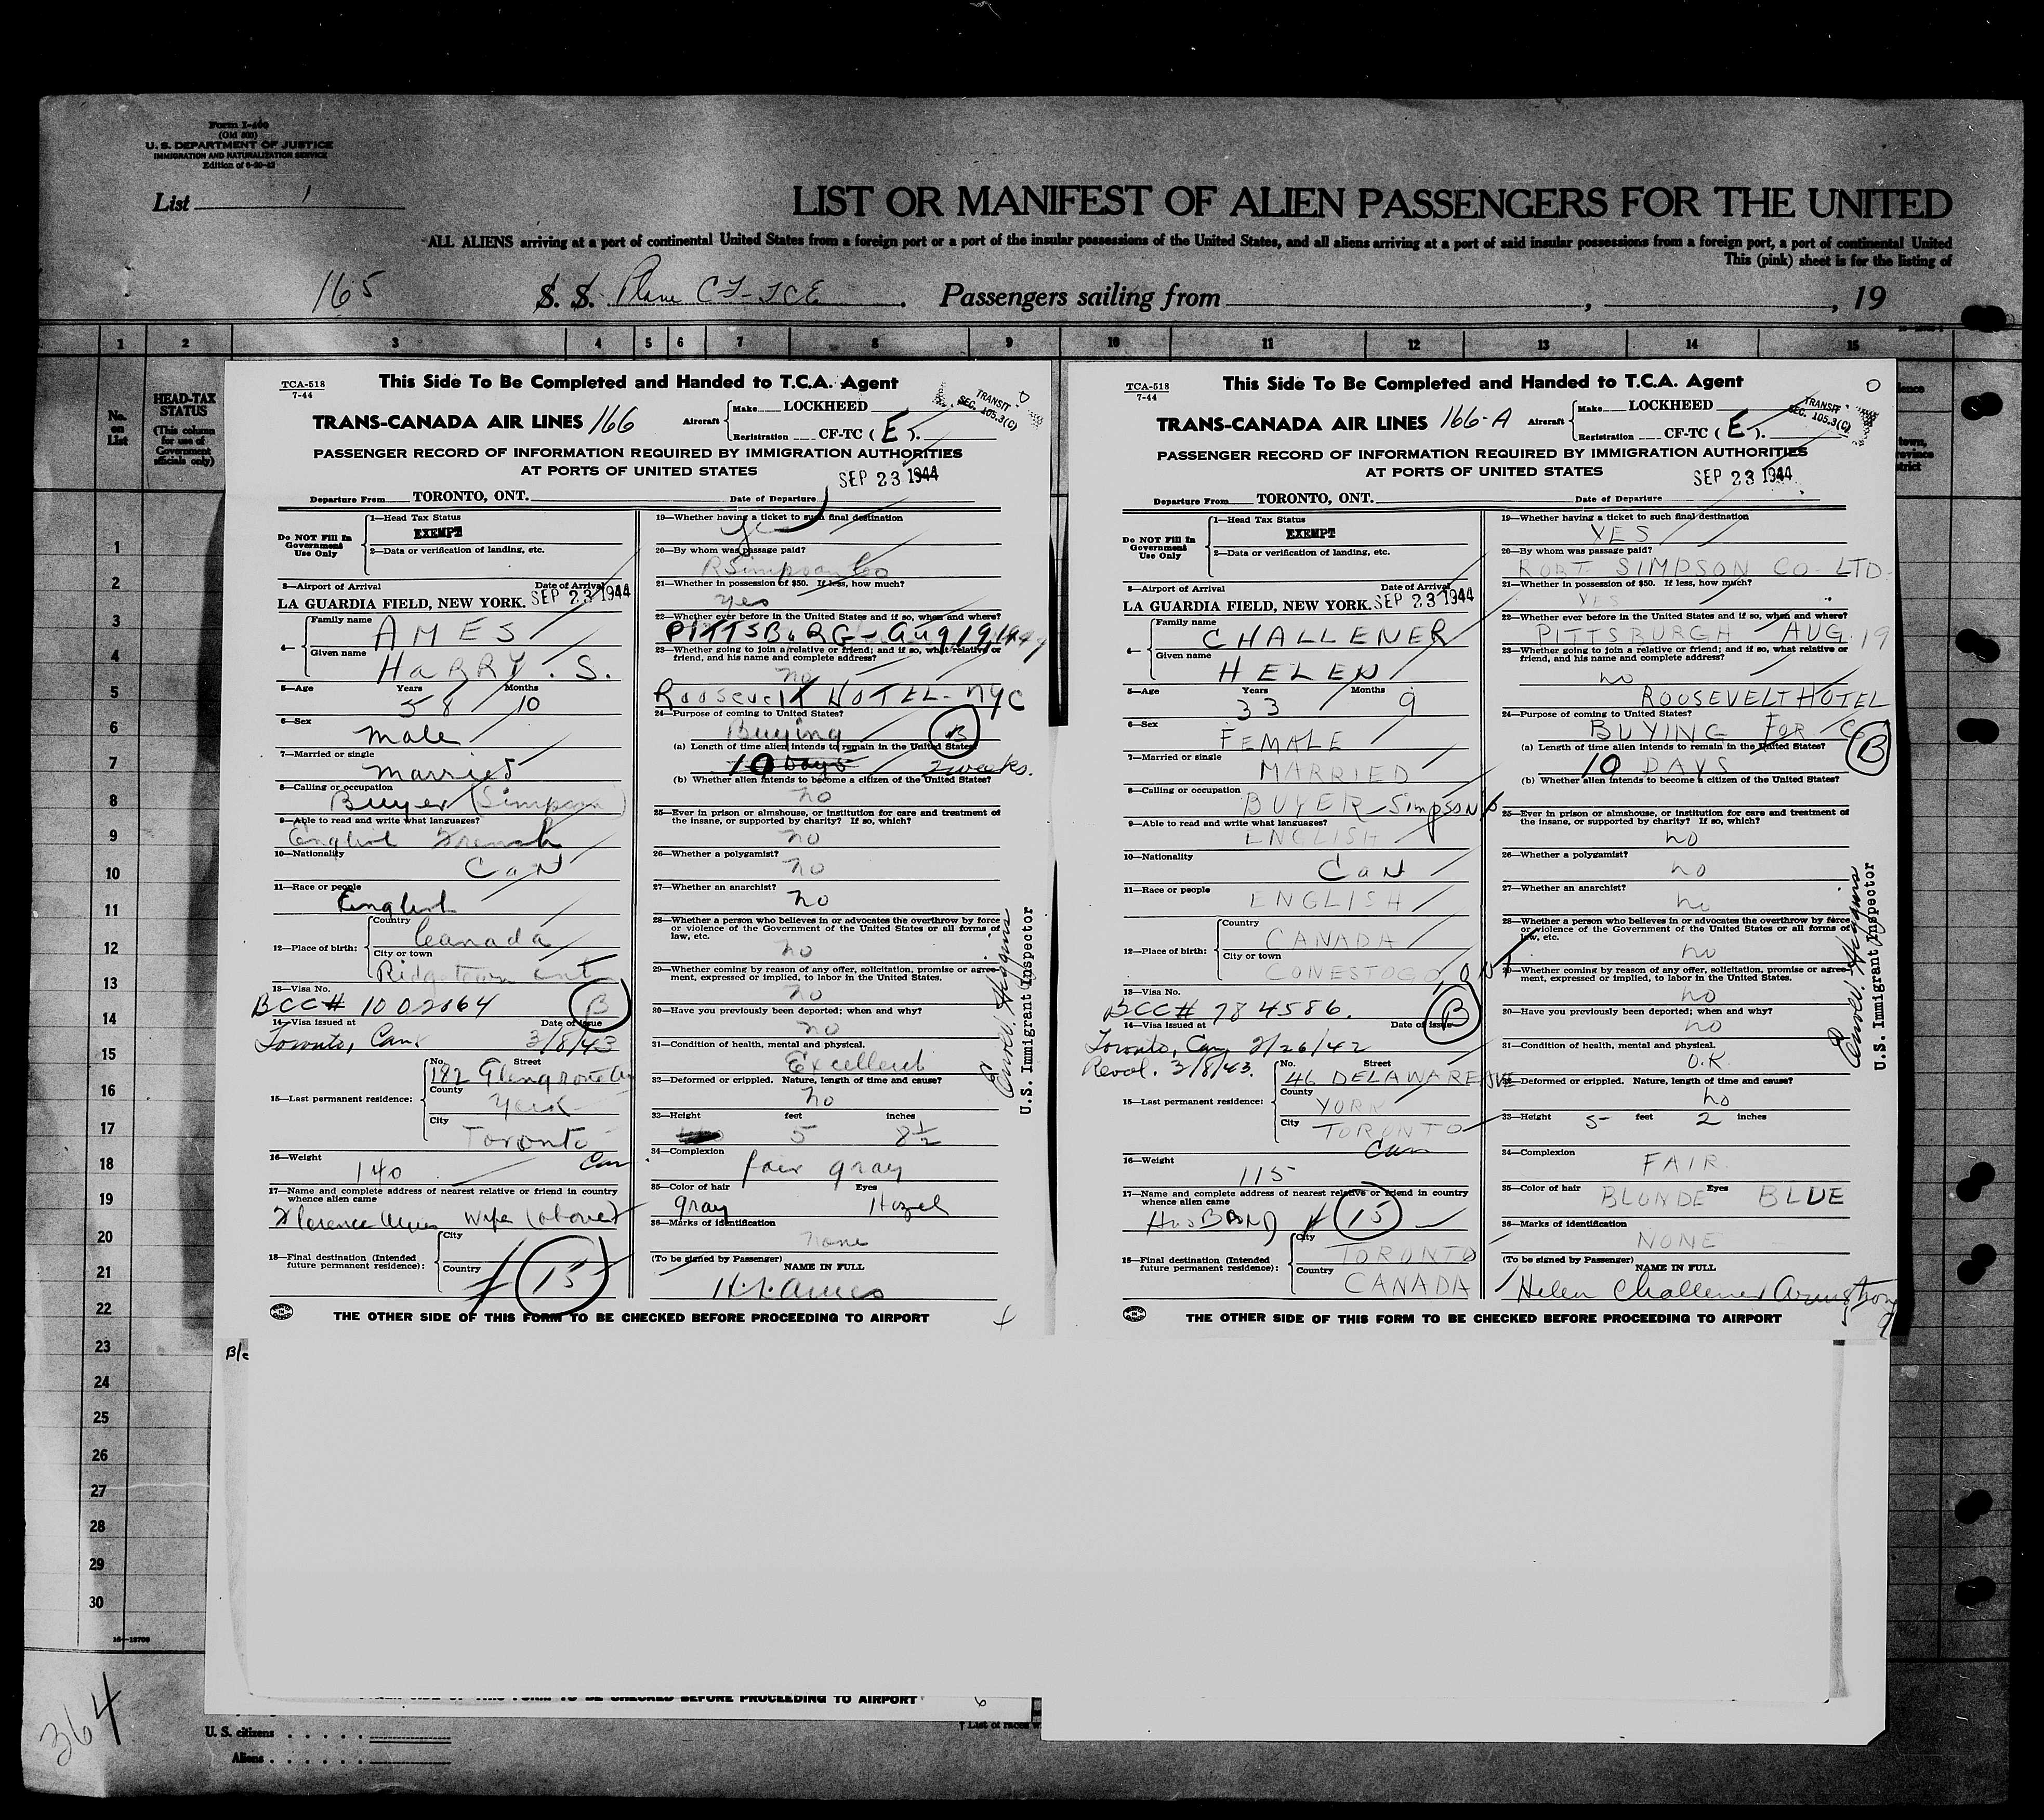 Form I-466
(Old 500)
U. S. DEPARTMENT OF JUSTICE
IMMIGRATION AND NATURALIZATION SERVICE
List 1
LIST OR MANIFEST OF ALIEN PASSENGERS FOR THE UNITED
ALL ALIENS arriving at a port of continental United States from a foreign port or a port of the insular possessions of the United States, and all aliens arriving at a port of said insular possessions from a foreign port, a port of continental United
This (pink) sheet is for the listing of
165 S. S. Plane CF-TCE . Passengers sailing from , , 19
1 2 3 4 5 6 7 8 9 10 11 12 13 14 15
No. on List
HEAD-TAX STATUS
(This column for use of Government officials only)
TCA-518
7-44
This Side To Be Completed and Handed to T.C.A. Agent
TRANSIT
SEC. 105.3(C)
TRANS-CANADA AIR LINES 166
Aircraft Make LOCKHEED
Registration CF-TC ( E ).
PASSENGER RECORD OF INFORMATION REQUIRED BY IMMIGRATION AUTHORITIES
AT PORTS OF UNITED STATES
SEP 23 1944
Departure From TORONTO, ONT. Date of Departure
Do NOT Fill In Government Use Only
1—Head Tax Status
EXEMPT
2—Data or verification of landing, etc.
3—Airport of Arrival Date of Arrival
LA GUARDIA FIELD, NEW YORK. SEP 23 1944
4— Family name
AMES
Given name
HARRY. S.
5—Age Years Months
58 10
6—Sex
male
7—Married or single
married
8—Calling or occupation
Buyer (Simpson)
9—Able to read and write what languages?
English French
10—Nationality
CaN
11—Race or people
English
12—Place of birth: Country
Canada
City or town
Ridgetown Ont
13—Visa No.
BCC# 1002864 B
14—Visa issued at Date of issue
Toronto, Can. 3/8/43
15—Last permanent residence: No. Street
182 Glengrove Av
County
York
City
Toronto
Can
16—Weight
140
17—Name and complete address of nearest relative or friend in country whence alien came
Florence Ames Wife (above)
18—Final destination (Intended future permanent residence): City
Country
15
19—Whether having a ticket to such final destination
yes
20—By whom was passage paid?
R Simpson Co
21—Whether in possession of $50. If less, how much?
yes
22—Whether ever before in the United States and if so, when and where?
PITTSBURG - Aug 19 1944
23—Whether going to join a relative or friend; and if so, what relative or friend, and his name and complete address?
no
Roosevelt HOTEL - NYC
24—Purpose of coming to United States?
Buying B
(a) Length of time alien intends to remain in the United States?
10 Days 2 weeks.
(b) Whether alien intends to become a citizen of the United States?
no
25—Ever in prison or almshouse, or institution for care and treatment of the insane, or supported by charity? If so, which?
no
26—Whether a polygamist?
no
27—Whether an anarchist?
no
28—Whether a person who believes in or advocates the overthrow by force or violence of the Government of the United States or all forms of law, etc.
no
29—Whether coming by reason of any offer, solicitation, promise or agreement, expressed or implied, to labor in the United States.
no
30—Have you previously been deported; when and why?
no
31—Condition of health, mental and physical.
Excellent
32—Deformed or crippled. Nature, length of time and cause?
no
33—Height feet inches
5 8½
34—Complexion
fair gray
35—Color of hair Eyes
gray Hazel
36—Marks of identification
none
(To be signed by Passenger)
NAME IN FULL
H.S. Ames
U.S. Immigrant Inspector
THE OTHER SIDE OF THIS FORM TO BE CHECKED BEFORE PROCEEDING TO AIRPORT
TCA-518
7-44
This Side To Be Completed and Handed to T.C.A. Agent
TRANSIT
SEC. 105.3(C)
TRANS-CANADA AIR LINES 166-A
Aircraft Make LOCKHEED
Registration CF-TC ( E ).
PASSENGER RECORD OF INFORMATION REQUIRED BY IMMIGRATION AUTHORITIES
AT PORTS OF UNITED STATES
SEP 23 1944
Departure From TORONTO, ONT. Date of Departure
Do NOT Fill In Government Use Only
1—Head Tax Status
EXEMPT
2—Data or verification of landing, etc.
3—Airport of Arrival Date of Arrival
LA GUARDIA FIELD, NEW YORK. SEP 23 1944
4— Family name
CHALLENER
Given name
HELEN
5—Age Years Months
33 9
6—Sex
FEMALE
7—Married or single
MARRIED
8—Calling or occupation
BUYER Simpson's
9—Able to read and write what languages?
ENGLISH
10—Nationality
CaN
11—Race or people
ENGLISH
12—Place of birth: Country
CANADA
City or town
CONESTOGO, ONT
13—Visa No.
BCC# 784586. B
14—Visa issued at Date of issue
Toronto, Can 2/26/42
Reval. 3/8/43.
15—Last permanent residence: No. Street
46 DELAWARE AVE
County
YORK
City
TORONTO
Can
16—Weight
115
17—Name and complete address of nearest relative or friend in country whence alien came
HUSBAND # 15
18—Final destination (Intended future permanent residence): City
TORONTO
Country
CANADA
19—Whether having a ticket to such final destination
YES
20—By whom was passage paid?
ROBT. SIMPSON CO. LTD.
21—Whether in possession of $50. If less, how much?
YES
22—Whether ever before in the United States and if so, when and where?
PITTSBURGH AUG. 19
23—Whether going to join a relative or friend; and if so, what relative or friend, and his name and complete address?
no
ROOSEVELT HOTEL
24—Purpose of coming to United States?
BUYING FOR C B
(a) Length of time alien intends to remain in the United States?
10 DAYS
(b) Whether alien intends to become a citizen of the United States?
25—Ever in prison or almshouse, or institution for care and treatment of the insane, or supported by charity? If so, which?
no
26—Whether a polygamist?
no
27—Whether an anarchist?
no
28—Whether a person who believes in or advocates the overthrow by force or violence of the Government of the United States or all forms of law, etc.
no
29—Whether coming by reason of any offer, solicitation, promise or agreement, expressed or implied, to labor in the United States.
no
30—Have you previously been deported; when and why?
no
31—Condition of health, mental and physical.
O.K.
32—Deformed or crippled. Nature, length of time and cause?
no
33—Height 5 feet 2 inches
34—Complexion
FAIR
35—Color of hair BLONDE Eyes BLUE
36—Marks of identification
NONE
(To be signed by Passenger)
NAME IN FULL
Helen Challener Armstrong
U.S. Immigrant Inspector
THE OTHER SIDE OF THIS FORM TO BE CHECKED BEFORE PROCEEDING TO AIRPORT
1
2
3
4
5
6
7
8
9
10
11
12
13
14
15
16
17
18
19
20
21
22
23
24
25
26
27
28
29
30
B/c
BEFORE PROCEEDING TO AIRPORT
U. S. citizens
Aliens
364